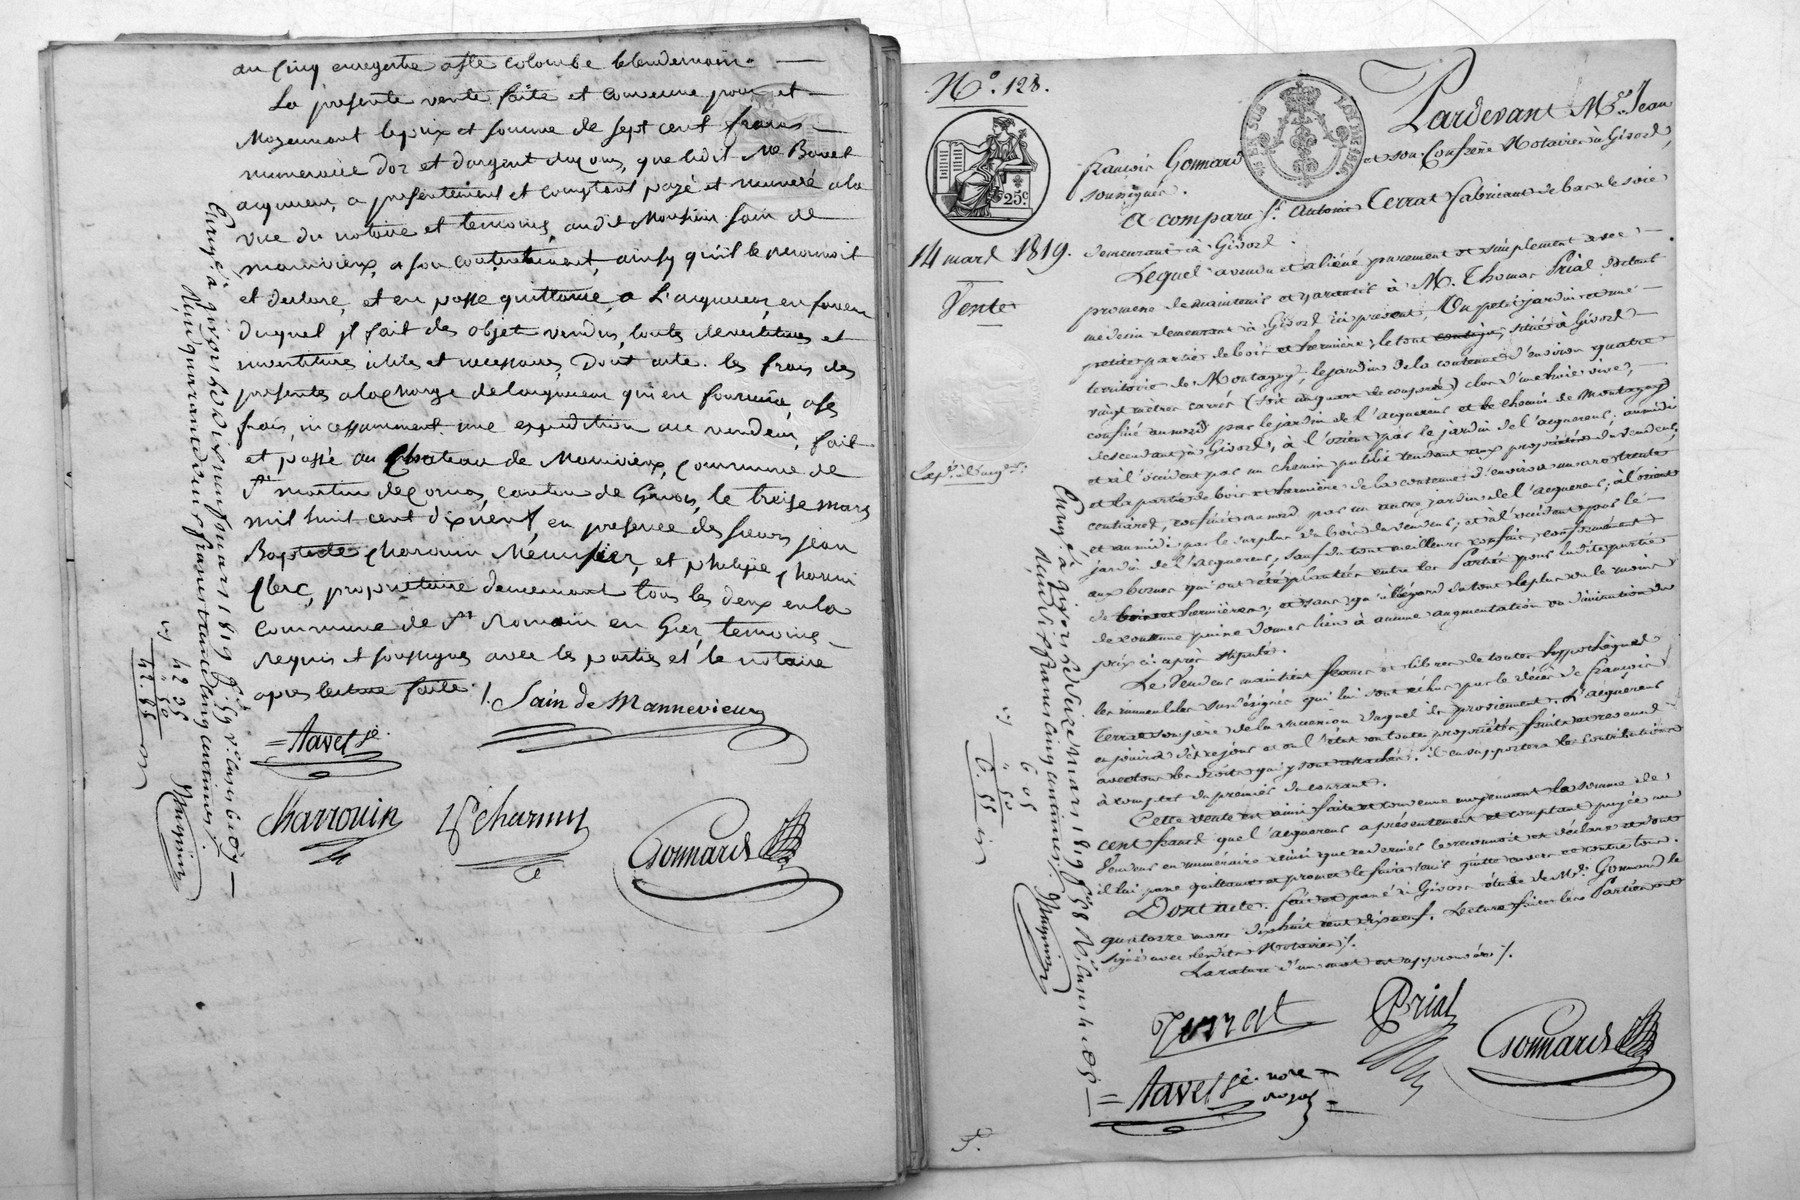 au cinq enregistré a Ste colombe le lendemain.
La presente vente faite et convenue pour et
Moyennant le prix et somme de sept cent francs
numeraire d'or et d'argent du cours, que ledit Mr
acquereur, a presentement et comptant payé et numeré a la
vue du notaire et temoins, audit Monsieur Sain de
mannivieux, a son contentement, ainsy qu'il le reconnoit
et declare, et en passe quittance a L'acquereur, en faveur
duquel il fait des objets vendus, toutes devestitures et
investitures utiles et necessaires, Dont acte. les frais des
presentes a la charge de lacquereur qui en fournira, a ses
frais, incessamment une expedition au vendeur, fait
et passé au Chateau de Mannivieux, Commune de
St martin de Cornas, canton de Givors, le treize mars
mil huit cent dixneuf, en presence des sieurs jean
Baptiste charouin Meunisier, et philipe charmi
Clerc, proprietaire demeurant tous les deux en la
commune de St Romain en Gier, temoins
requis et soussignés avec les parties et le notaire
apres lecture faite ./. Sain de Mannevieux
= Navet je.
Charrouin Ph charmy
Gonnard
Enregé à Givors le dix neuf mars 1819 fo 59
Reçu quarante deux francs trente cinq centimes
42 35
42.85
No. 128.
25c
14 mars 1819.
Vente
Pardevant Me Jean
françois Gonnard et son Confrère Notaires à Givors,
soussignés.
A comparu Sr Antoine Terrat fabricant de bas de soie
demeurant à Givors.
Lequel a vendu et aliéné purement et simplement avec
promesse de maintenir et garantir à M. Thomas Prial docteur
médecin demeurant à Givors ici présent, Un petit jardin et une
petite partie de bois et hermière, le tout situé à Givors
territoire de Montagny, le jardin de la contenue d'environ quatre
vingt mètres carrés (soit un quart de couperée) clos d'une haie vive,
confiné au nord par le jardin de l'acquereur et le chemin de Montagny
descendant à Givors, à l'orient par le jardin de l'acquereur, au midi
et à l'occident par un chemin public tendant aux propriétés du vendeur;
et la partie de bois et hermière de la contenue d'environ un are trente
centiares, confinée au nord par un autre jardin de l'acquereur, à l'orient
et au midi par le surplus du bois du vendeur, et à l'occident par le
jardin de l'acquereur, sauf du tout meilleurs confins, conformément
aux bornes qui ont été plantées entre les Parties pour ladite partie
de bois et hermières, et sans qu'à l'égard du tout le plus ou le moins
de contenue puisse donner lieu à aucune augmentation ou diminution du
prix ci après stipulé.
Le Vendeur maintient francs et libres de toutes hypothèques
les immeubles sus désignés qui lui sont échus par le décès de françois
Terrat son père de la succession duquel ils proviennent. L'acquereur
en jouira dès ce jour et en l'état en toute propriété, fruits et revenus
avec tous les droits qui y sont attachés. il en supportera les contributions
à compter du premier du courant.
Cette vente est ainsi faite et convenue moyennant la somme de
cent francs que l'acquereur a présentement et comptant payée au
Vendeur en numéraire ainsi que ce dernier le reconnoit et déclare et dont
il lui passe quittance et promet le faire tenir quitte envers et contre tous.
Dont acte. fait et passé à Givors étude de Me Gonnard le
quatorze mars dixhuit cent dixneuf. Lecture faite les Parties ont
signé avec lesdits Notaires ./.
La rature d'un mot est approuvée ./.
Terrat Prial Gonnard
= Navet je. nore
Enregé à Givors le seize mars 1819 fo 58
Reçu six francs cinq centimes
6 05
6.55